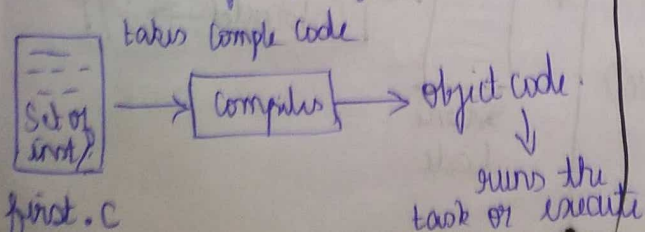 takes Comple code
Set of
inst/.
first.c
Compiler
object code.
runs the
task or execute